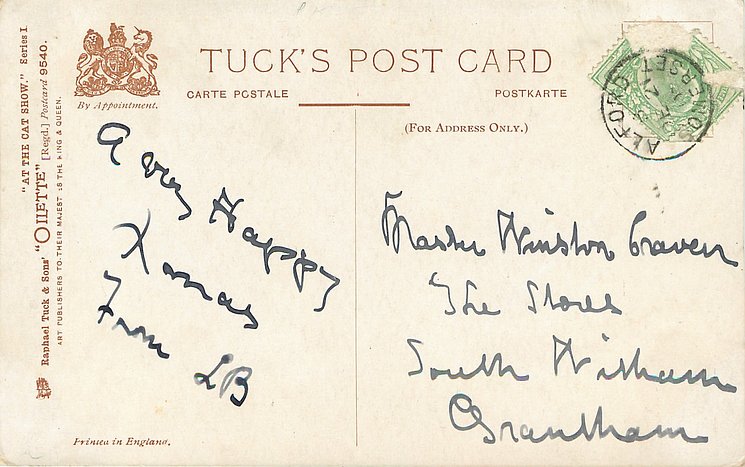 Raphael Tuck & Sons' "OILETTE" [Regd.] Postcard 9540.
"AT THE CAT SHOW." Series I
ART PUBLISHERS TO THEIR MAJEST IS THE KING & QUEEN.
By Appointment.
TUCK'S POST CARD
CARTE POSTALE
POSTKARTE
(FOR ADDRESS ONLY.)
ALFORD
A very Happy
Xmas
From LB
Master Winston Craven
The Stores
South Witham
Grantham
Printed in England.